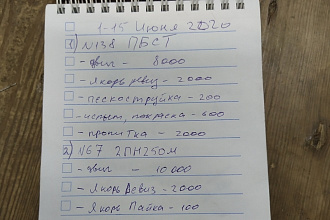 1-15 Июня 2020
1) N138 ПБСТ
- движ - 8000
- якорь ревиз - 2000
- пескоструйка - 200
- испыт, покраска - 600
- пропитка - 2000
2) N67 2ПН250М
- движ - 10000
- Якорь Ревиз - 2000
- Якорь Пайка - 100